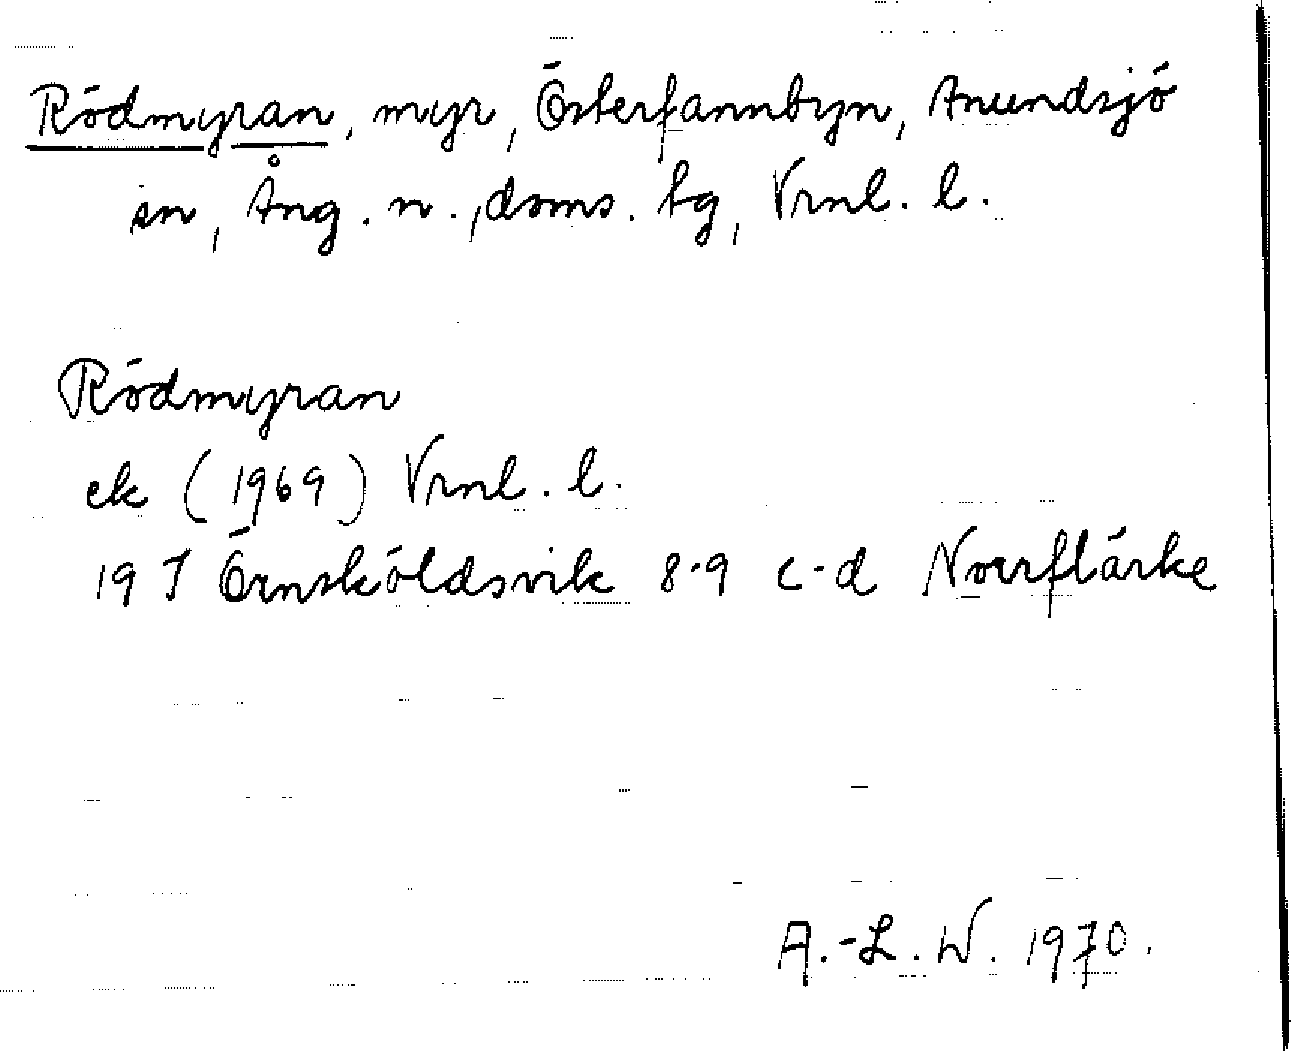 Rödmyran, myr, Österfannbyn, Anundsjö
sn, Ång. n., doms. bg, Vrnl. l.
Rödmyran
ek (1969) Vrnl. l.
19 J Örnsköldsvik 8-9 c-d Norrflärke
A.-L. W. 1970.